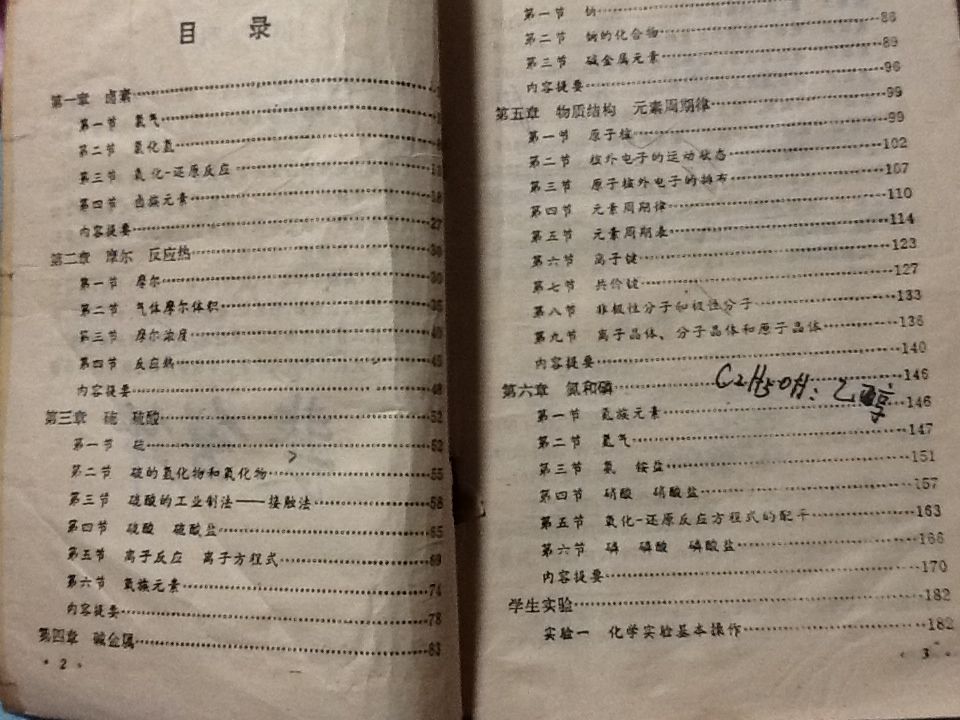 目 录
第一章 卤素
第一节 氯气
第二节 氯化氢
第三节 氧化-还原反应
第四节 卤族元素
内容提要 27
第二章 摩尔 反应热
第一节 摩尔
第二节 气体摩尔体积
第三节 摩尔浓度
第四节 反应热
内容提要 48
第三章 硫 硫酸 52
第一节 硫 52
第二节 硫的氢化物和氧化物 55
第三节 硫酸的工业制法——接触法 58
第四节 硫酸 硫酸盐 65
第五节 离子反应 离子方程式 69
第六节 氧族元素 74
内容提要 78
第四章 碱金属 83
· 2 ·
第一节 钠
第二节 钠的化合物 86
第三节 碱金属元素 89
内容提要 96
第五章 物质结构 元素周期律 99
第一节 原子核 99
第二节 核外电子的运动状态 102
第三节 原子核外电子的排布 107
第四节 元素周期律 110
第五节 元素周期表 114
第六节 离子键 123
第七节 共价键 127
第八节 非极性分子和极性分子 133
第九节 离子晶体、分子晶体和原子晶体 136
内容提要 140
第六章 氮和磷 146
C2H5OH: 乙醇
第一节 氮族元素 146
第二节 氮气 147
第三节 氨 铵盐 151
第四节 硝酸 硝酸盐 157
第五节 氧化-还原反应方程式的配平 163
第六节 磷 磷酸 磷酸盐 166
内容提要 170
学生实验 182
实验一 化学实验基本操作 182
· 3 ·